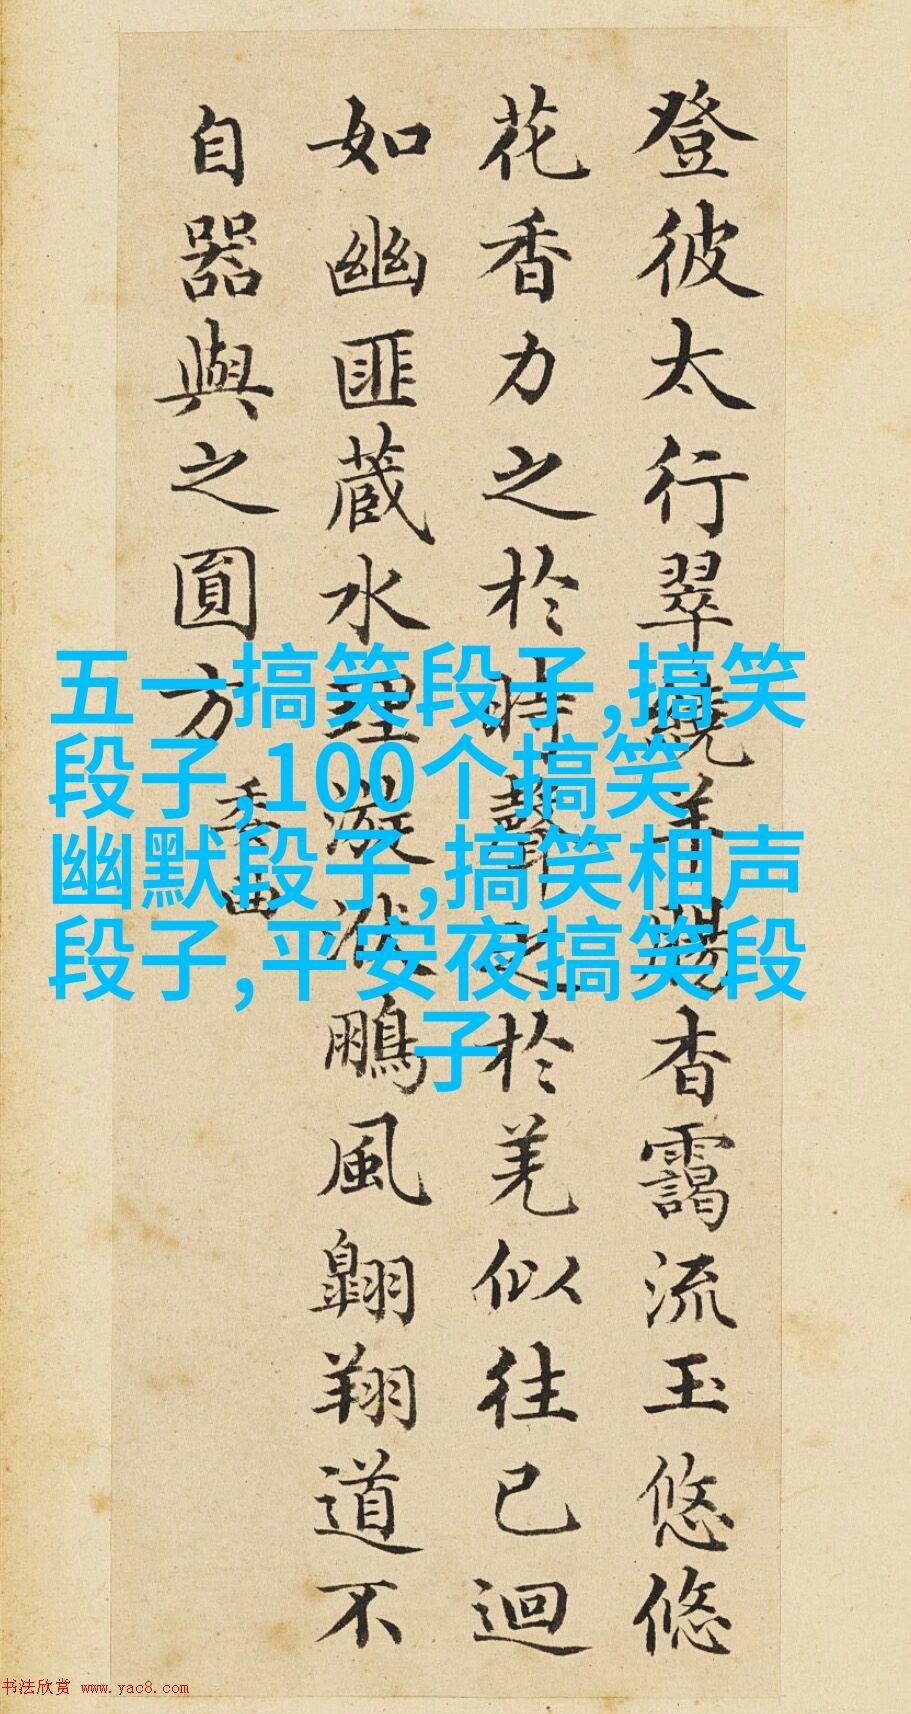 登彼太行翠繞羊腸杳靄流玉悠悠
花香力之於時聲之於羌似往已迴
如幽匪藏水理漩洑鵬風翱翔道不
自器與之圓方
委曲
五一搞笑段子,搞笑
段子,100个搞笑
幽默段子,搞笑相声
段子,平安夜搞笑段
子
书法欣赏 www.yac8.com